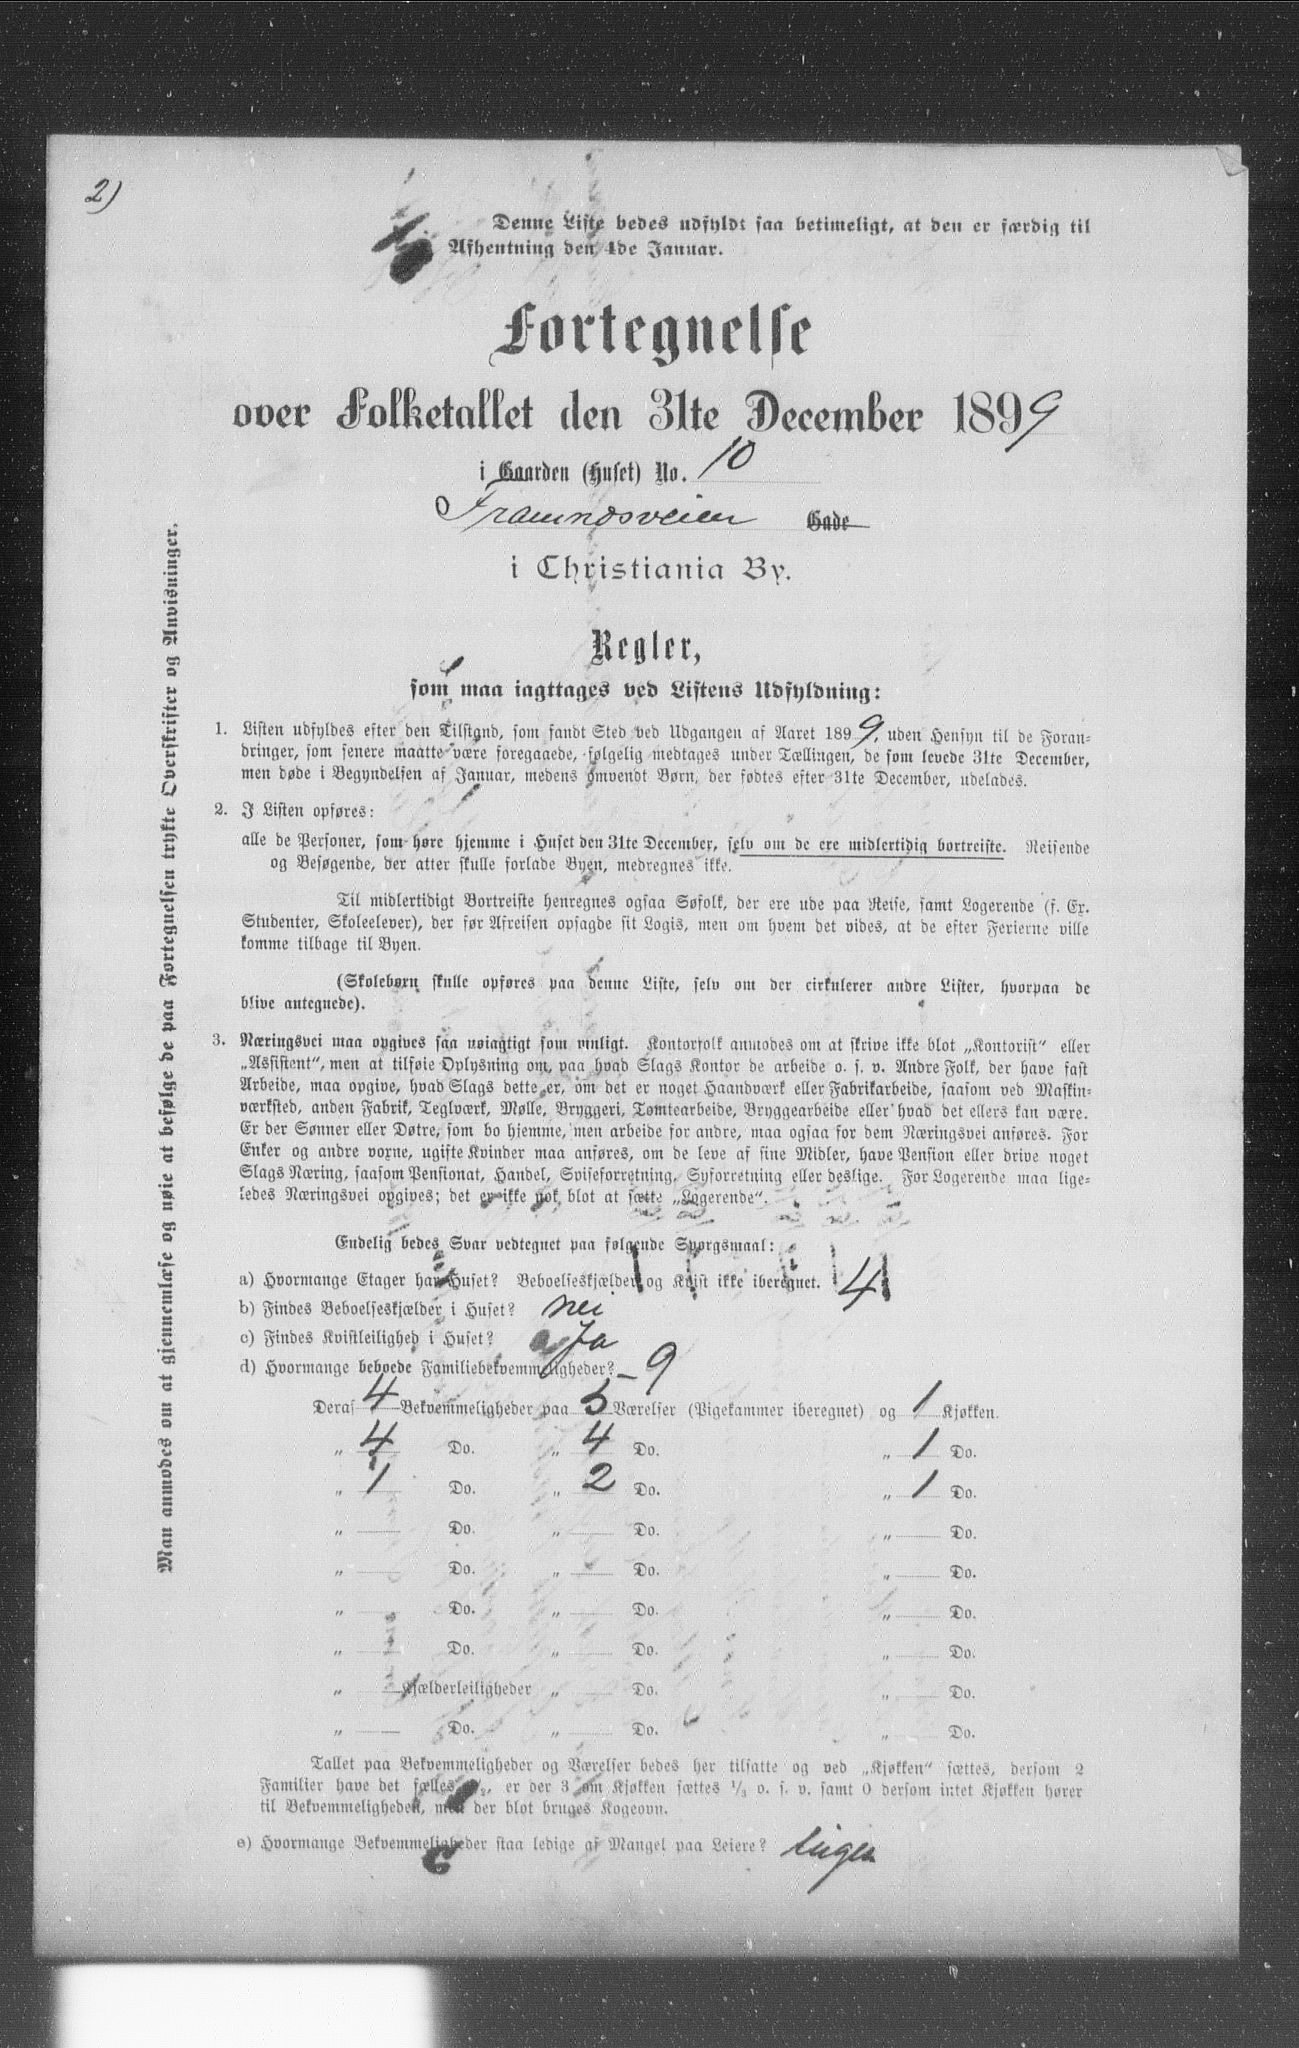 2)
Denne Liste bedes udfyldt saa betimeligt, at den er færdig til
Afhentning den 4de Januar.
Fortegnelse
over Folketallet den 31te December 1899
i Gaarden (Huset) No. 10
Framnæsveien Gade
i Christiania By.
Regler,
som maa iagttages ved Listens Udfyldning:
1. Listen udfyldes efter den Tilstand, som fandt Sted ved Udgangen af Aaret 1899, uden Hensyn til de Foran-
dringer, som senere maatte være foregaaede, følgelig medtages under Tællingen, de som levede 31te December,
men døde i Begyndelsen af Januar, medens omvendt Børn, der fødtes efter 31te December, udelades.
2. I Listen opføres:
alle de Personer, som høre hjemme i Huset den 31te December, selv om de ere midlertidig bortreiste. Reisende
og Besøgende, der atter skulle forlade Byen, medregnes ikke.
Til midlertidigt Bortreiste henregnes ogsaa Søfolk, der ere ude paa Reise, samt Logerende (f. Ex.
Studenter, Skoleelever), der før Afreisen opsagde sit Logis, men om hvem det vides, at de efter Ferierne ville
komme tilbage til Byen.
(Skolebørn skulle opføres paa denne Liste, selv om der cirkulerer andre Lister, hvorpaa de
blive antegnede).
3. Næringsvei maa opgives saa nøiagtigt som muligt. Kontorfolk anmodes om at skrive ikke blot „Kontorist“ eller
„Assistent“, men at tilføie Oplysning om, paa hvad Slags Kontor de arbeide o. s. v. Andre Folk, der have fast
Arbeide, maa opgive, hvad Slags dette er, om det er noget Haandværk eller Fabrikarbeide, saasom ved Maskin-
værksted, anden Fabrik, Teglværk, Mølle, Bryggeri, Tomtearbeide, Bryggearbeide eller hvad det ellers kan være.
Er der Sønner eller Døtre, som bo hjemme, men arbeide for andre, maa ogsaa for dem Næringsvei anføres. For
Enker og andre voxne, ugifte Kvinder maa anføres, om de leve af sine Midler, have Pension eller drive noget
Slags Næring, saasom Pensionat, Handel, Spiseforretning, Syforretning eller deslige. For Logerende maa lige-
ledes Næringsvei opgives; det er ikke nok blot at sætte „Logerende“.
Endelig bedes Svar vedtegnet paa følgende Spørgsmaal:
a) Hvormange Etager har Huset? Beboelseskjælder og Kvist ikke iberegnet. 4
b) Findes Beboelseskjælder i Huset? nei
c) Findes Kvistleilighed i Huset? Ja
d) Hvormange beboede Familiebekvemmeligheder? – 9
Deraf 4 Bekvemmeligheder paa 5 Værelser (Pigekammer iberegnet) og 1 Kjøkken.
„ 4 Do. „ 4 Do. „ 1 Do.
„ 1 Do. „ 2 Do. „ 1 Do.
„ Do. „ Do. „ Do.
„ Do. „ Do. „ Do.
„ Do. „ Do. „ Do.
„ Do. „ Do. „ Do.
„ Kjælderleiligheder „ Do. „ Do.
„ Do. „ Do. „ Do.
Tallet paa Bekvemmeligheder og Værelser bedes her tilsatte og ved „Kjøkken“ sættes, dersom 2
Familier have det fælles ½, er der 3 om Kjøkken sættes ⅓ o. s. v. samt 0 dersom intet Kjøkken hører
til Bekvemmeligheden, men der blot bruges Kogeovn.
e) Hvormange Bekvemmeligheder staa ledige af Mangel paa Leiere? Ingen
Man anmodes om at gjennemlæse og nøie at befølge de paa Fortegnelsen trykte Overskrifter og Anvisninger.